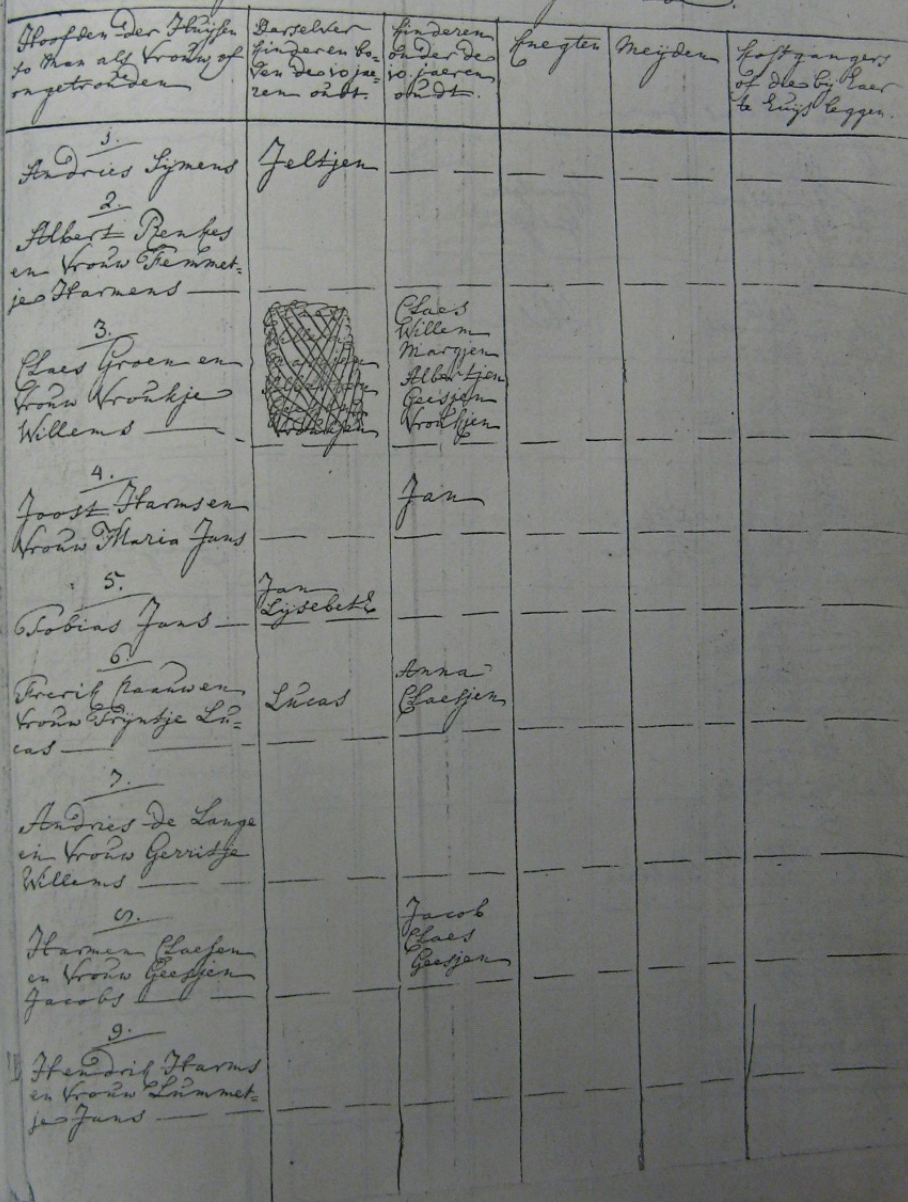 Hoofden der Huijsen
so Man als Vrouw of
ongetrouden
Derselver
kinderen bo-
ven de 10 jae-
ren oudt.
kinderen
onder de
10 jaeren
oudt.
Knegten
Meijden
kostgangers
of die bij haer
te huijs leggen.
1.
Andries Sijmens
Jeltjen
2.
Albert Renkes
en Vrouw Femmet=
je Harmens
3.
Claes Groen en
Vrouw Vroukje
Willems
Vroukjen
Claes
Willem
Margjen
Albertjen
Geesjen
Vroukjen
4.
Joost Harms en
Vrouw Maria Jans
Jan
5.
Tobias Jans
Jan
Lijsebeth
6.
Frerik en
Vrouw Trijntje Lu=
cas
Lucas
Anna
Claesjen
7.
Andries de Lange
en Vrouw Gerritje
Willems
8.
Harmen Claesen
en Vrouw Geesjen
Jacobs
Jacob
Claes
Geesjen
9.
Hendrik Harms
en Vrouw Lummet=
je Jans